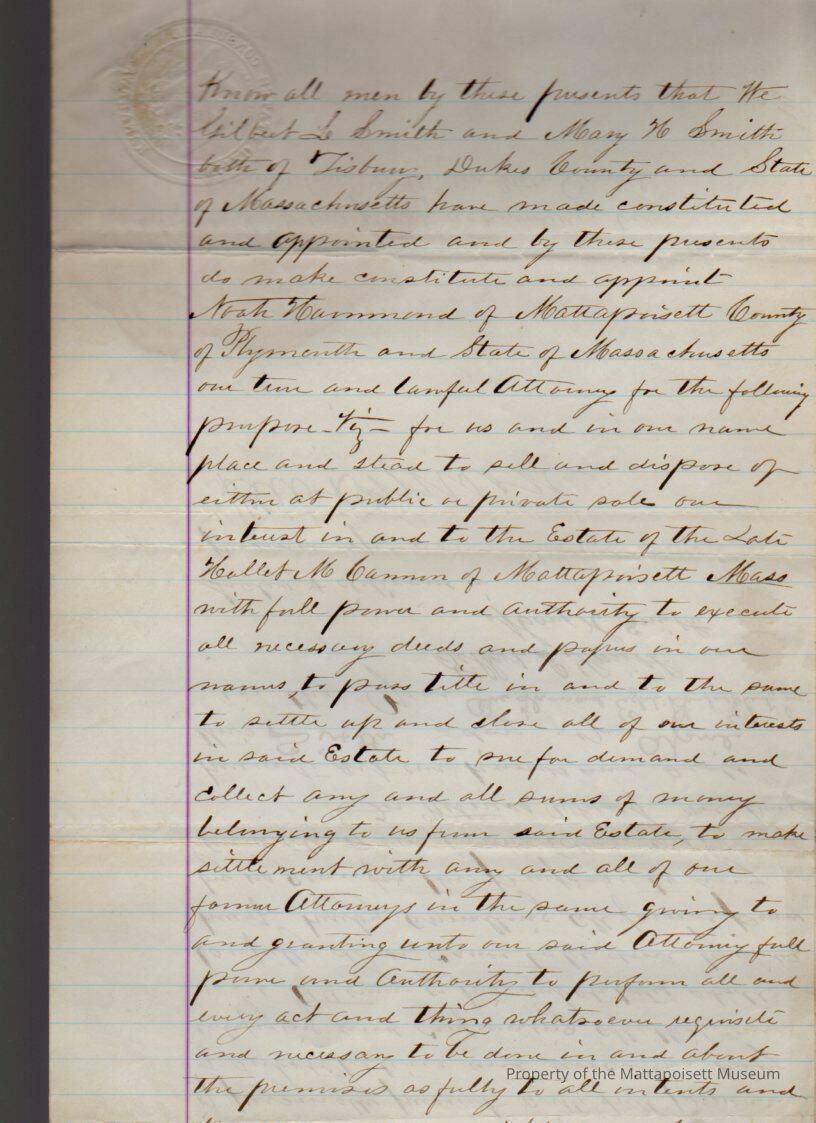 Know all men by these presents that We
Gilbert L Smith and Mary H Smith
both of Tisbury, Dukes County and State
of Massachusetts have made constituted
and appointed and by these presents
do make constitute and appoint
Noah Hammond of Mattapoisett County
of Plymouth and State of Massachusetts
our true and lawful Attorney for the following
purpose - Viz - for us and in our name
place and stead to sell and dispose of
either at public or private sale our
interest in and to the Estate of the Late
Hallet M Cannon of Mattapoisett Mass
with full power and authority to execute
all necessary deeds and papers in our
names, to pass title in and to the same
to settle up and close all of our interests
in said Estate to sue for demand and
collect any and all sums of money
belonging to us from said Estate, to make
settlement with any and all of our
former Attorneys in the same giving to
and granting unto our said Attorney full
power and Authority to perform all and
every act and thing whatsoever requisite
and necessary to be done in and about
Property of the Mattapoisett Museum
the premises as fully to all intents and